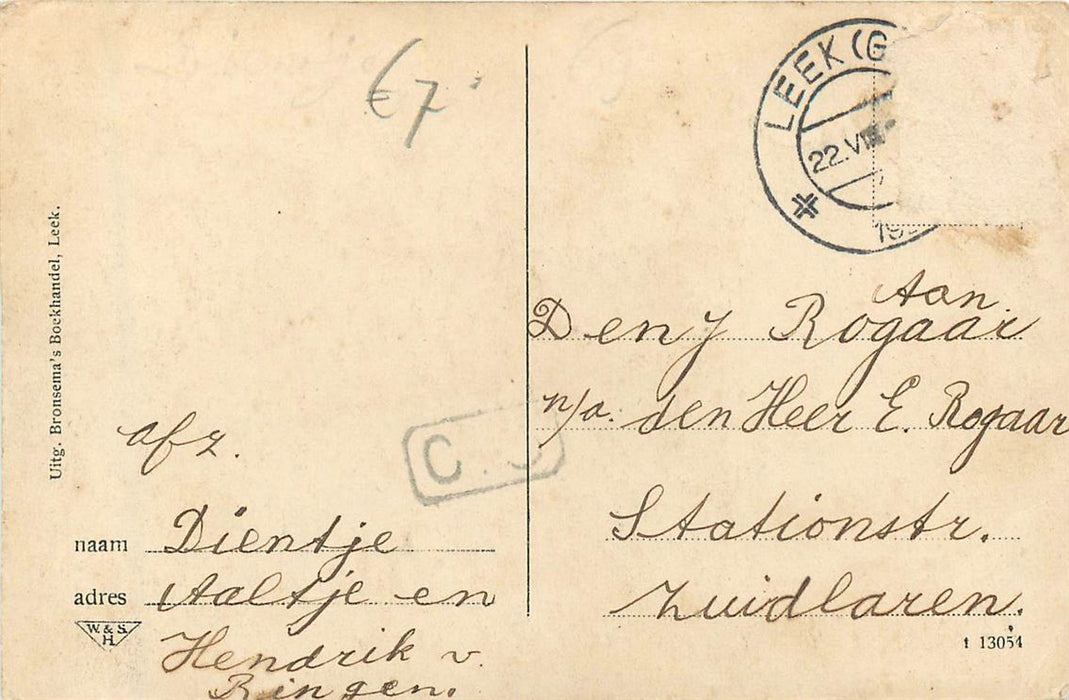 €7
LEEK (G
22.VIII
19
Uitg. Bronsema's Boekhandel, Leek.
Aan
Deny Rogaar
n/a. den Heer E. Rogaar
Stationstr.
Zuidlaren.
afz.
C.
naam Dientje
adres Aaltje en
Hendrik v.
Ringen.
W. & S.
H.
t 13054